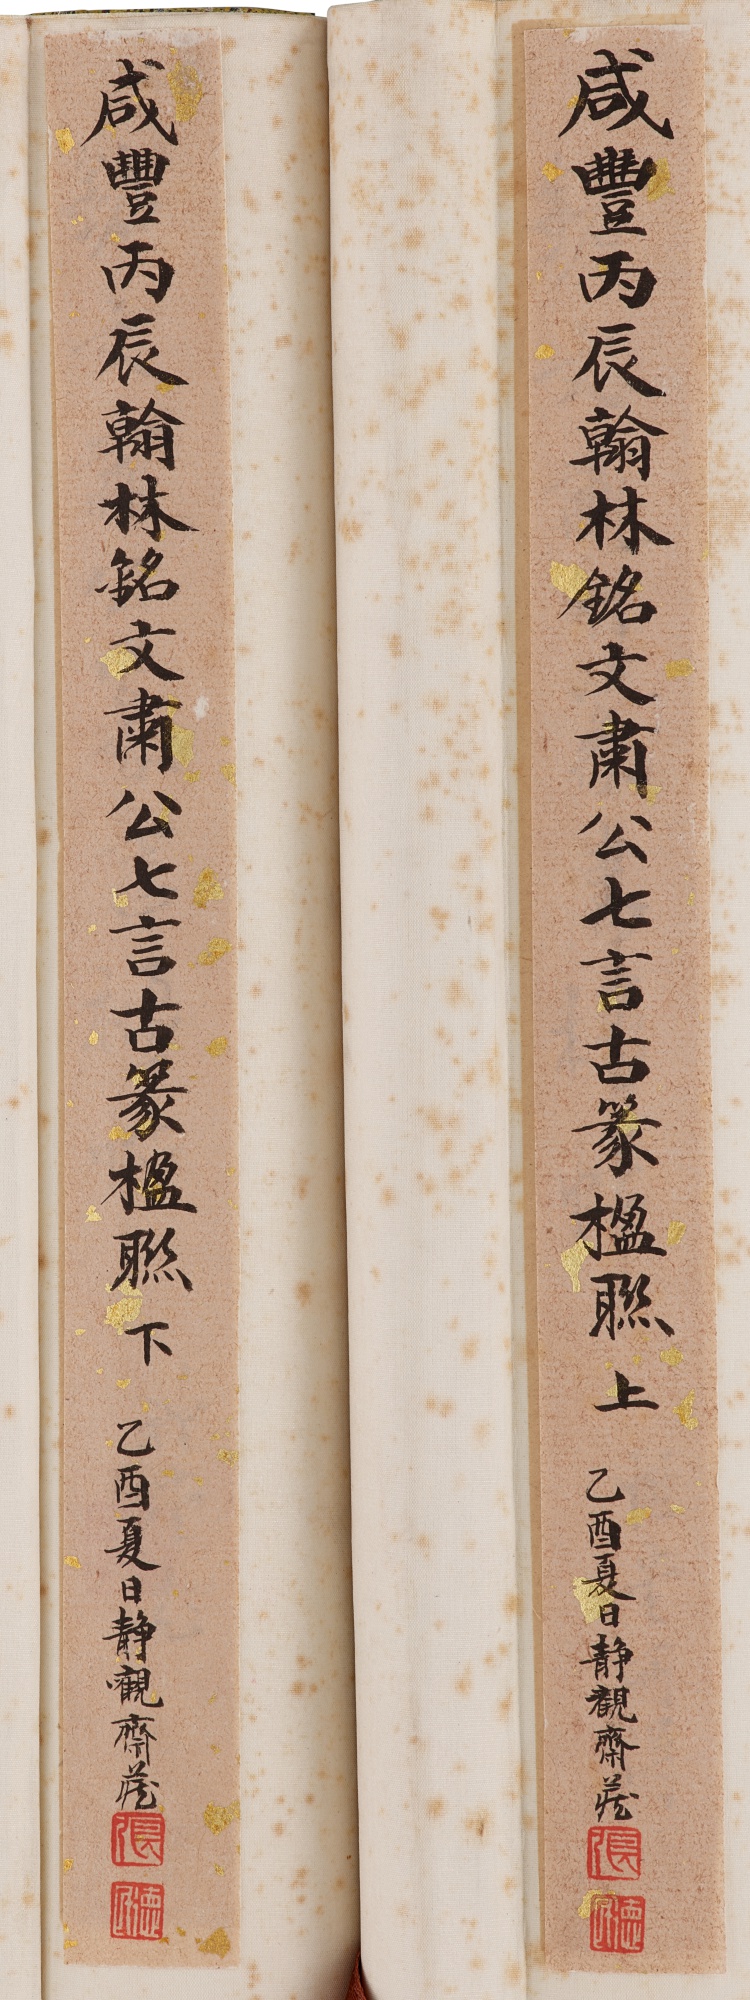 咸豐丙辰翰林銘文肅公七言古篆楹聯 上
乙酉夏日靜觀齋藏
咸豐丙辰翰林銘文肅公七言古篆楹聯 下
乙酉夏日靜觀齋藏